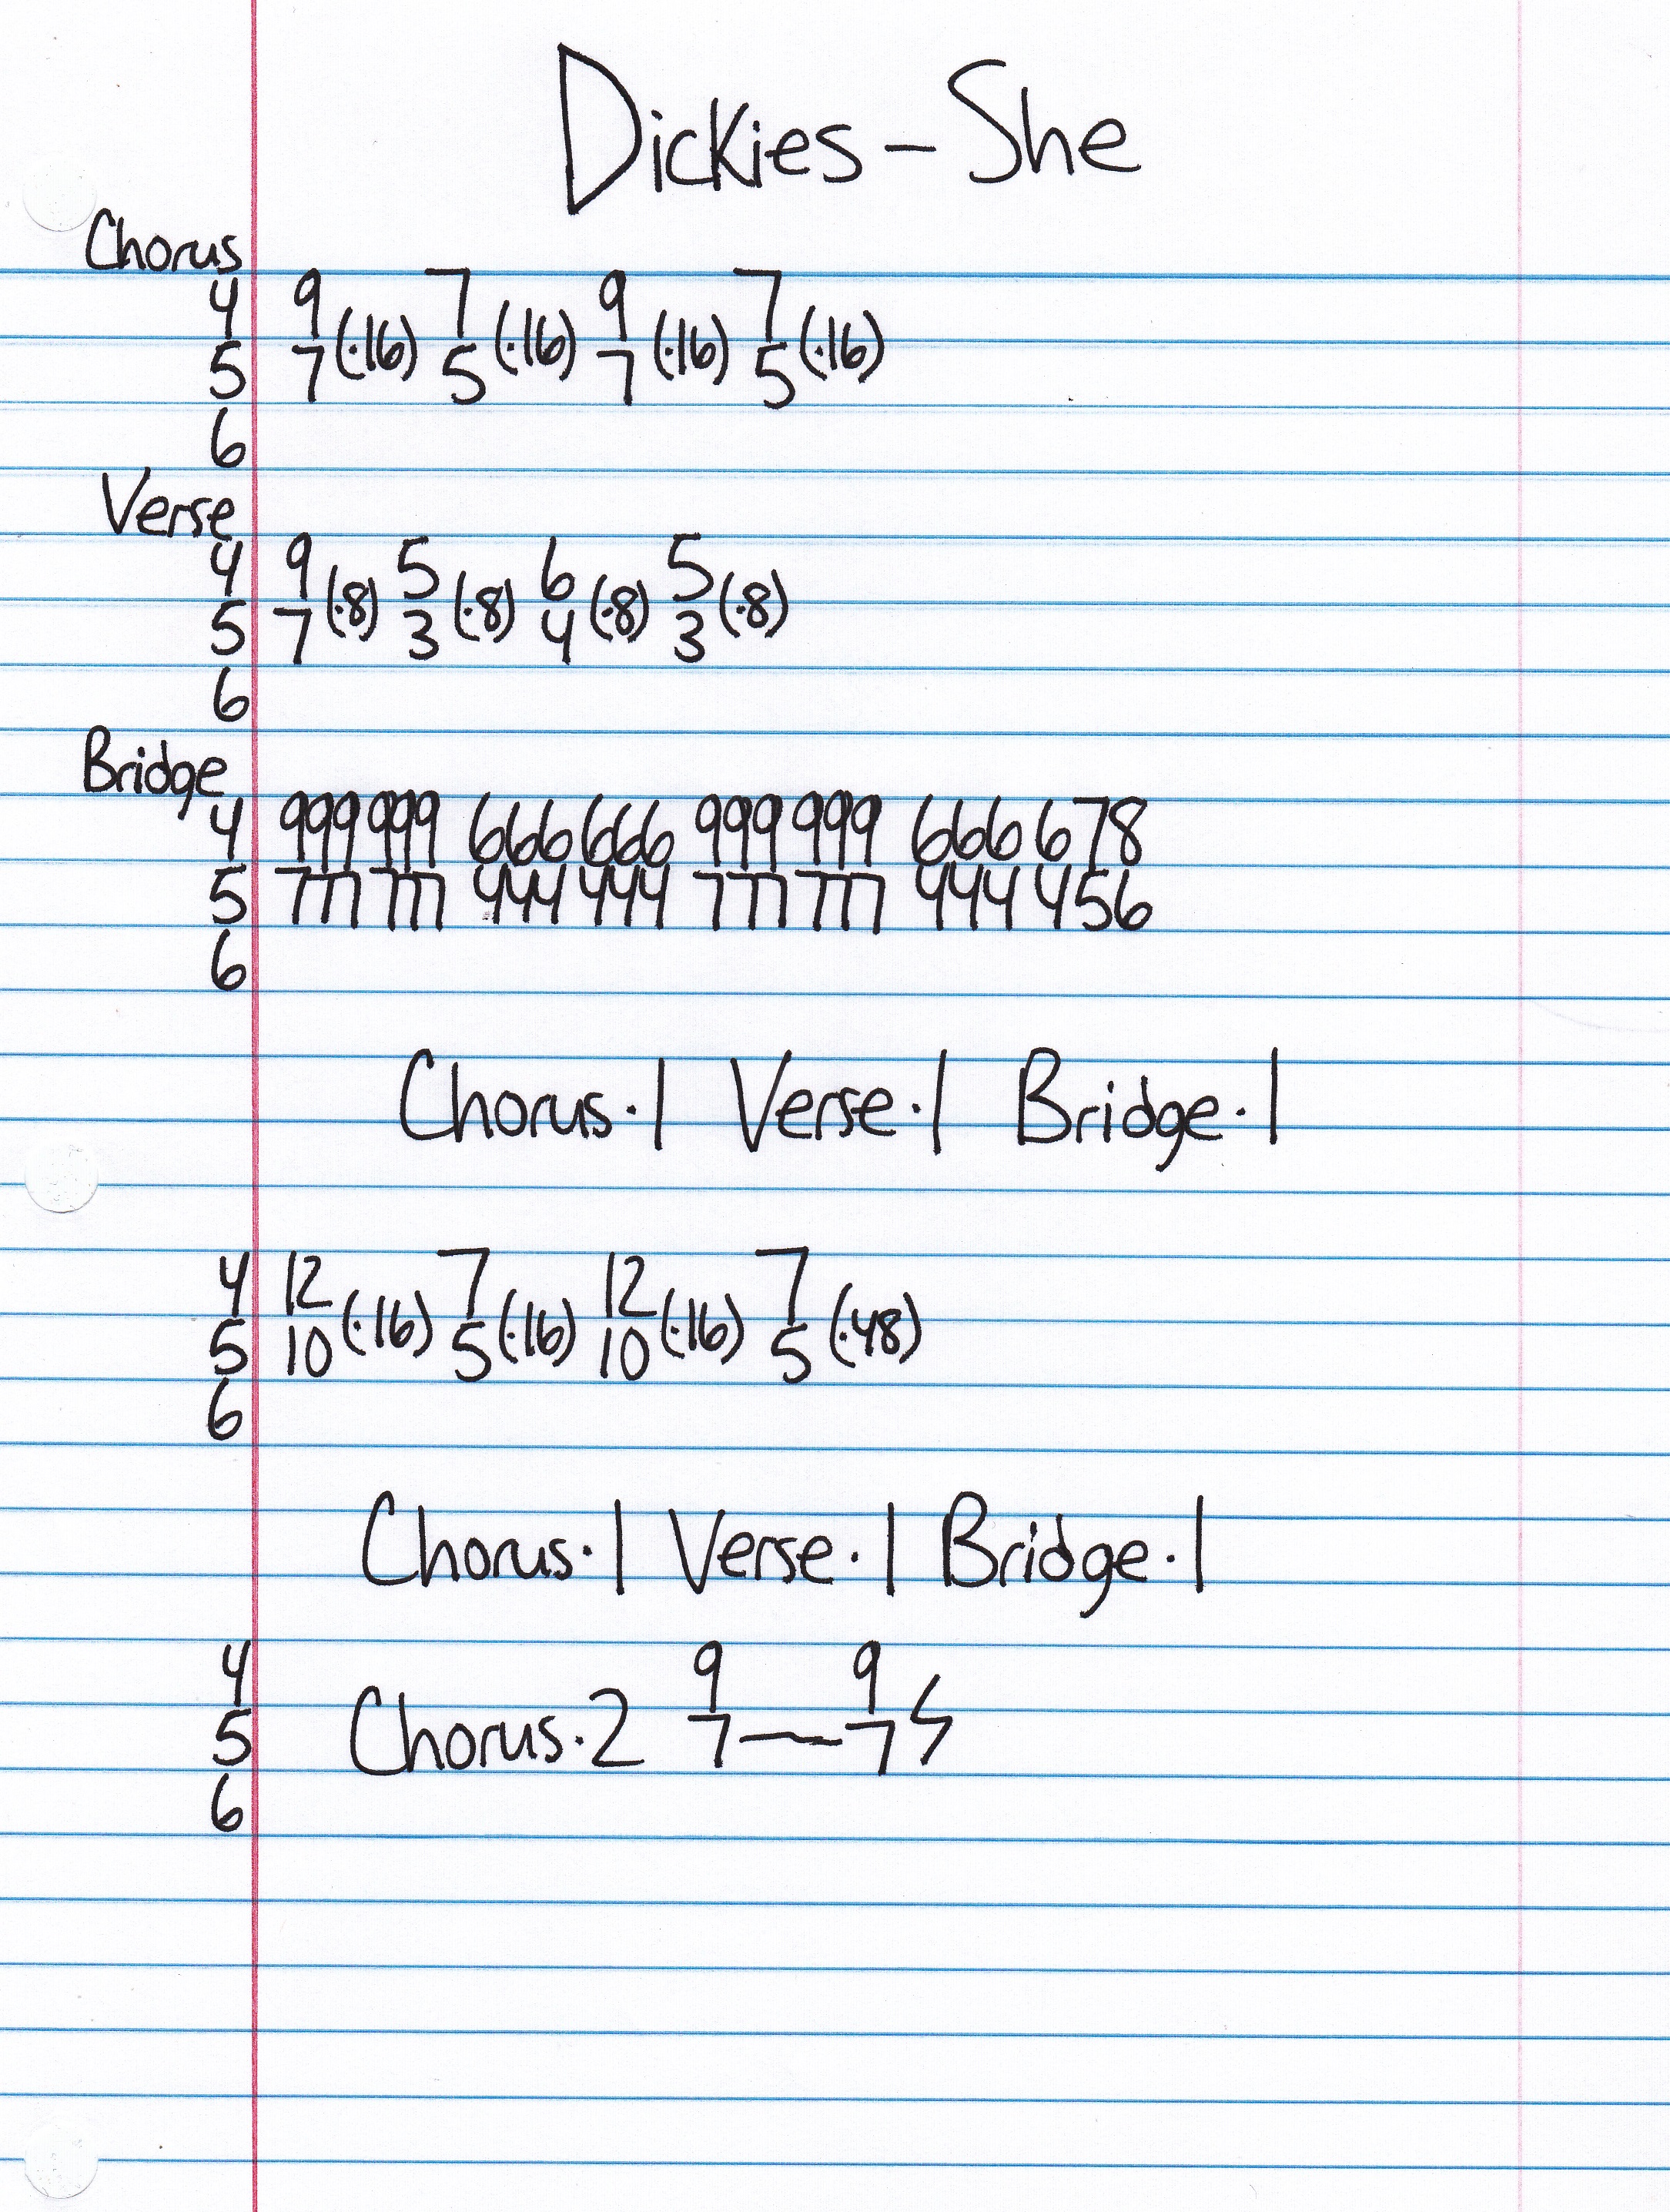 Dickies – She
Chorus
4 9 7 9 7
5 7 (·16) 5 (·16) 7 (·16) 5 (·16)
6
Verse
4 9 5 6 5
5 7 (·8) 3 (·8) 4 (·8) 3 (·8)
6
Bridge
4 999 999 666 666 999 999 666 678
5 777 777 444 444 777 777 444 456
6
Chorus·1 Verse·1 Bridge·1
4 12 7 12 7
5 10 (·16) 5 (·16) 10 (·16) 5 (·48)
6
Chorus·1 Verse·1 Bridge·1
4 9 9
5 Chorus·2 7 — 7
6